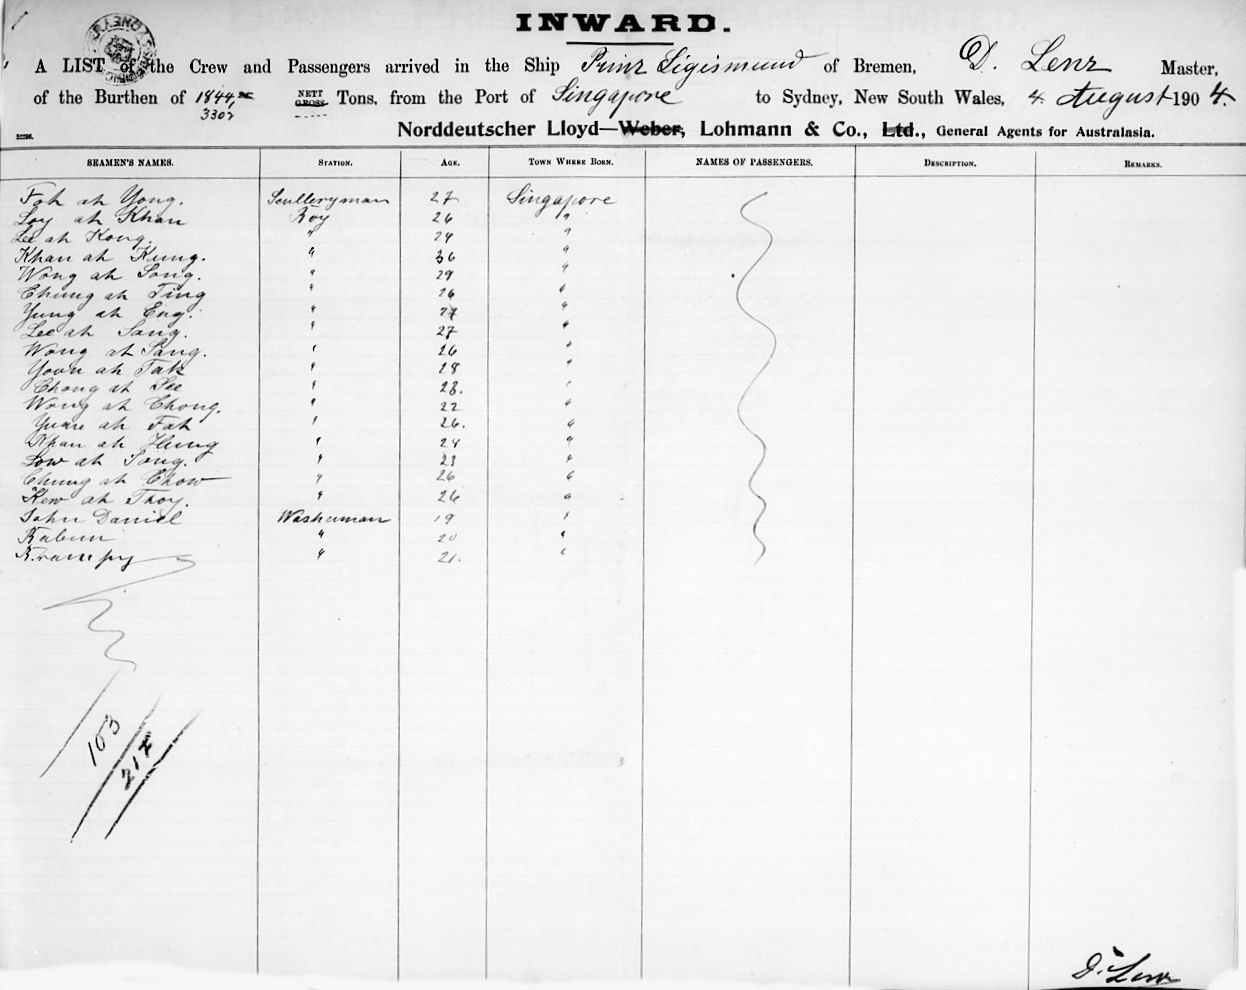 INWARD.
A LIST of the Crew and Passengers arrived in the Ship Prinz Sigismund of Bremen, D. Lenz Master,
of the Burthen of 1844, NETT GROSS Tons, from the Port of Singapore to Sydney, New South Wales, 4 August 1904.
3302
Norddeutscher Lloyd—Weber, Lohmann & Co., Ltd., General Agents for Australasia.
SEAMEN'S NAMES. STATION. AGE. TOWN WHERE BORN. NAMES OF PASSENGERS. DESCRIPTION. REMARKS.
Foh ah Yong. Sculleryman 27 Singapore
Loy ah Khan Boy 26 "
Lee ah Kong. " 24 "
Khan ah Kung. " 36 "
Wong ah Song. " 29 "
Chung ah Ting " 26 "
Yung ah Eng. " 27 "
Lee ah Sang. " 27 "
Wong ah Sang. " 26 "
Yoon ah Tak " 28 "
Chong ah Lee " 28. "
Wong ah Chong. " 22 "
Yuan ah Fah " 26. "
Khan ah Hung " 24 "
Low ah Song. " 23 "
Chung ah Chow " 26 "
Kew ah Thoy. " 26 "
John Daniel Washerman 19 "
Kabun " 20 "
" 21. "
103
217
D. Lenz